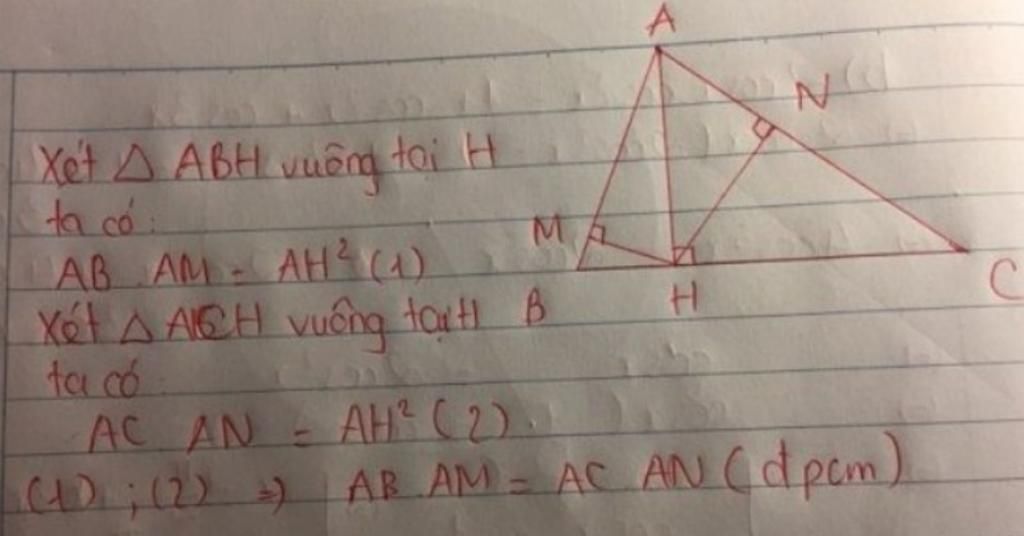 A
N
Xét △ ABH vuông tại H
ta có:
M
AB . AM = AH² (1)
H
C
Xét △ ACH vuông tại H
B
ta có
AC AN = AH² (2).
(1) ; (2) ⇒ AB AM = AC AN (đpcm)